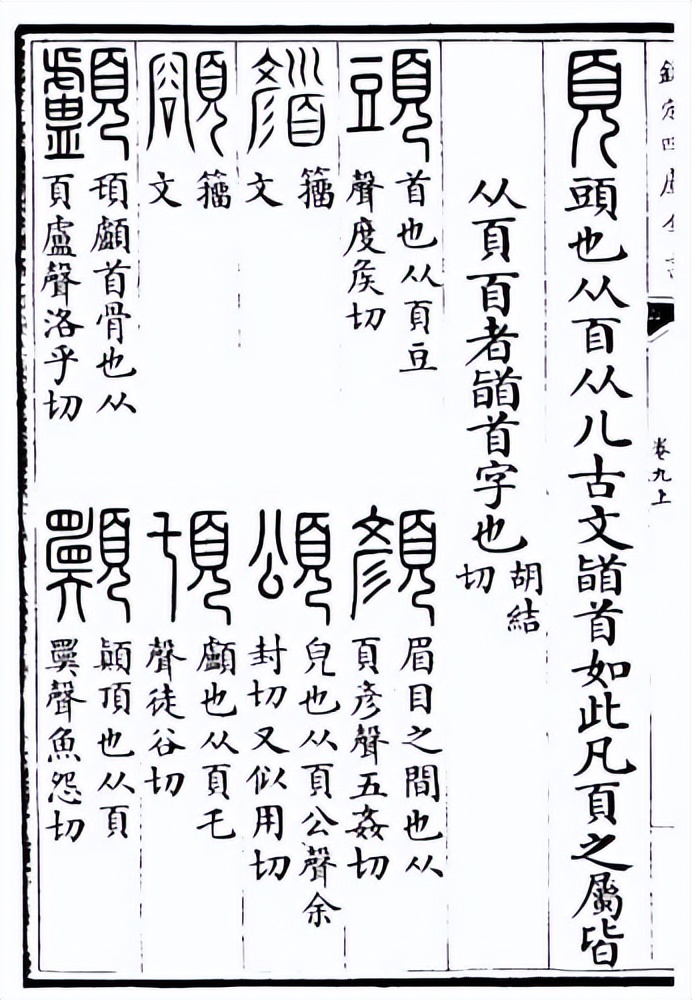 欽定四庫全書
卷九上
頁 頭也从𦣻从儿古文䭫首如此凡頁之屬皆
从頁𦣻者䭫首字也
胡結
切
頭 首也从頁豆
聲度侯切
顏 眉目之間也从
頁彥聲五姦切
籀
文
頌 皃也从頁公聲余
封切又似用切
額 籀
文
𩑒 顱也从頁乇
聲徒谷切
顱 𩑒顱首骨也从
頁盧聲洛乎切
顛頂也从頁
㬱聲魚怨切